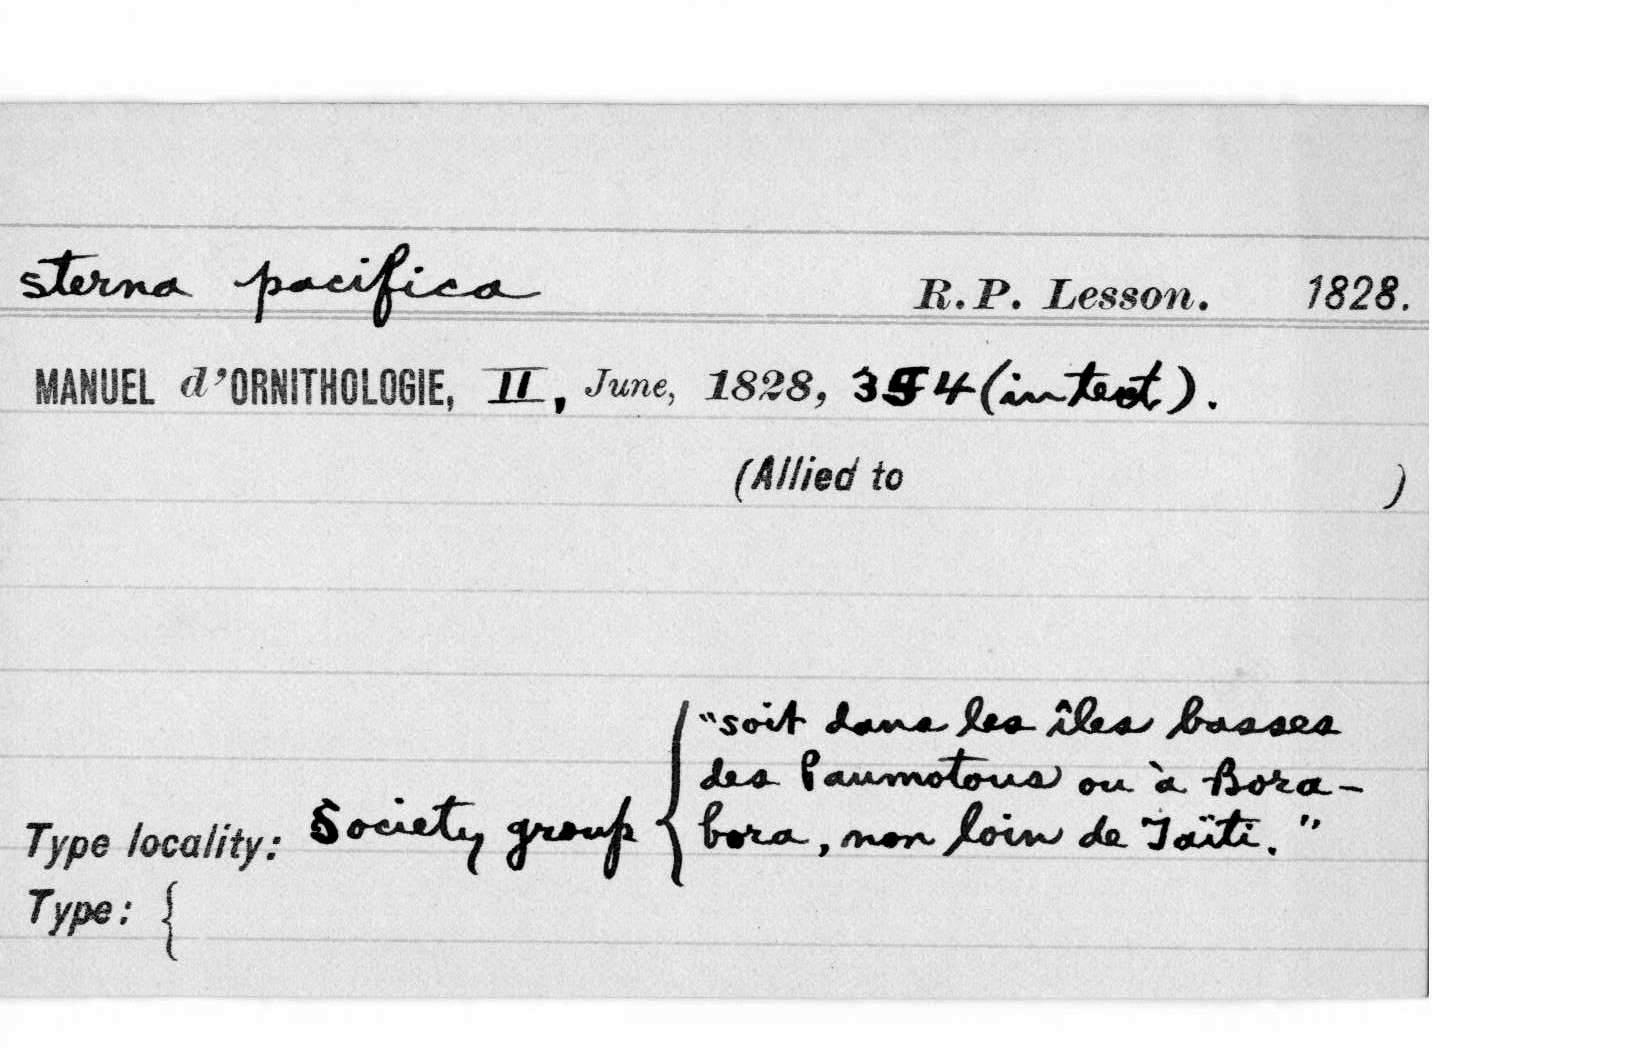 sterna pacifica R.P. Lesson. 1828.
MANUEL d'ORNITHOLOGIE, II, June, 1828, 354 (in text).
(Allied to )
"soit dans les îles basses
des Paumotous ou à Bora-
Type locality: Society group { bora, non loin de Taïti."
Type: {